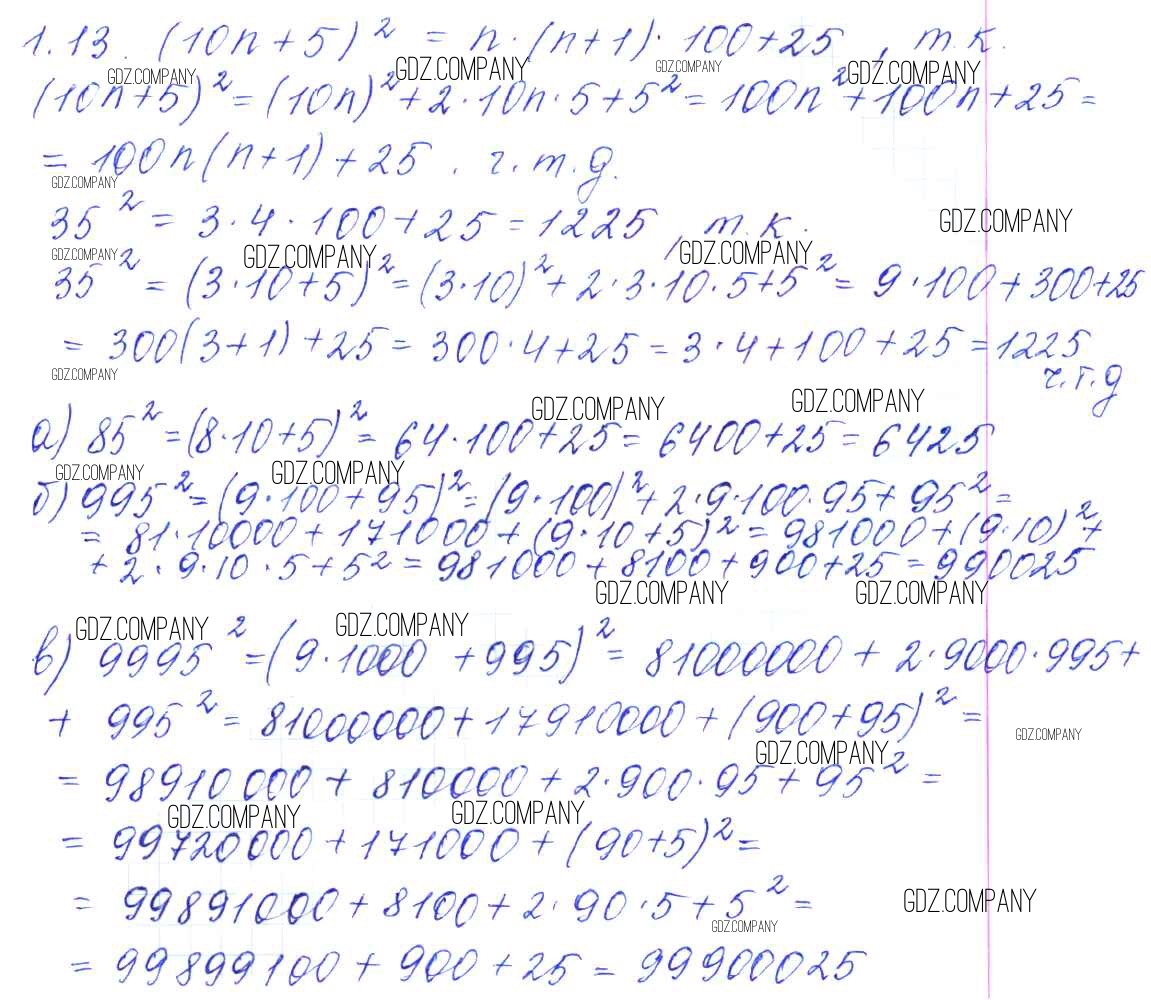 1.13. (10n+5)² = n·(n+1)·100+25, т.к.
GDZ.COMPANY GDZ.COMPANY GDZ.COMPANY GDZ.COMPANY
(10n+5)² = (10n)² + 2·10n·5+5² = 100n² + 100n + 25 =
= 100n(n+1) + 25. ч.т.д.
GDZ.COMPANY
35² = 3·4·100+25 = 1225, т.к.
GDZ.COMPANY
GDZ.COMPANY GDZ.COMPANY GDZ.COMPANY
35² = (3·10+5)² = (3·10)² + 2·3·10·5+5² = 9·100+300+25
= 300(3+1)+25 = 300·4+25 = 3·4+100+25 = 1225
GDZ.COMPANY
ч.т.д
GDZ.COMPANY GDZ.COMPANY
а) 85² = (8·10+5)² = 64·100+25 = 6400+25 = 6425
GDZ.COMPANY GDZ.COMPANY
б) 995² = (9·100+95)² = (9·100)² + 2·9·100·95+95² =
= 81·10000+171000+(9·10+5)² = 981000+(9·10)² +
+ 2·9·10·5+5² = 981000+8100+900+25 = 990025
GDZ.COMPANY GDZ.COMPANY
GDZ.COMPANY GDZ.COMPANY
в) 9995² = (9·1000+995)² = 81000000 + 2·9000·995+
+ 995² = 81000000+17910000+(900+95)² =
GDZ.COMPANY
GDZ.COMPANY
= 98910000+810000+2·900·95+95² =
GDZ.COMPANY GDZ.COMPANY
= 99720000+171000+(90+5)² =
= 99891000+8100+2·90·5+5² =
GDZ.COMPANY
GDZ.COMPANY
= 99899100+900+25 = 99900025